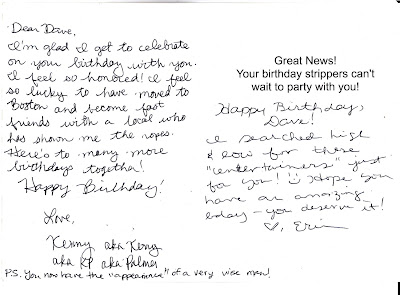 Dear Dave,
I'm glad I get to celebrate
on your birthday with you.
I feel so honored! I feel
so lucky to have moved to
Boston and become fast
friends with a local who
has shown me the ropes.
Here's to many more
birthdays together!
Happy Birthday!
Love,
Kenny aka Kerry
aka KP aka Palmer
P.S. You now have the "appearance" of a very wise man!
Great News!
Your birthday strippers can't
wait to party with you!
Happy Birthday,
Dave!
I searched high
& low for these
"entertainers" just
for you! Hope you
have an amazing
bday - you deserve it!
♡, Erin